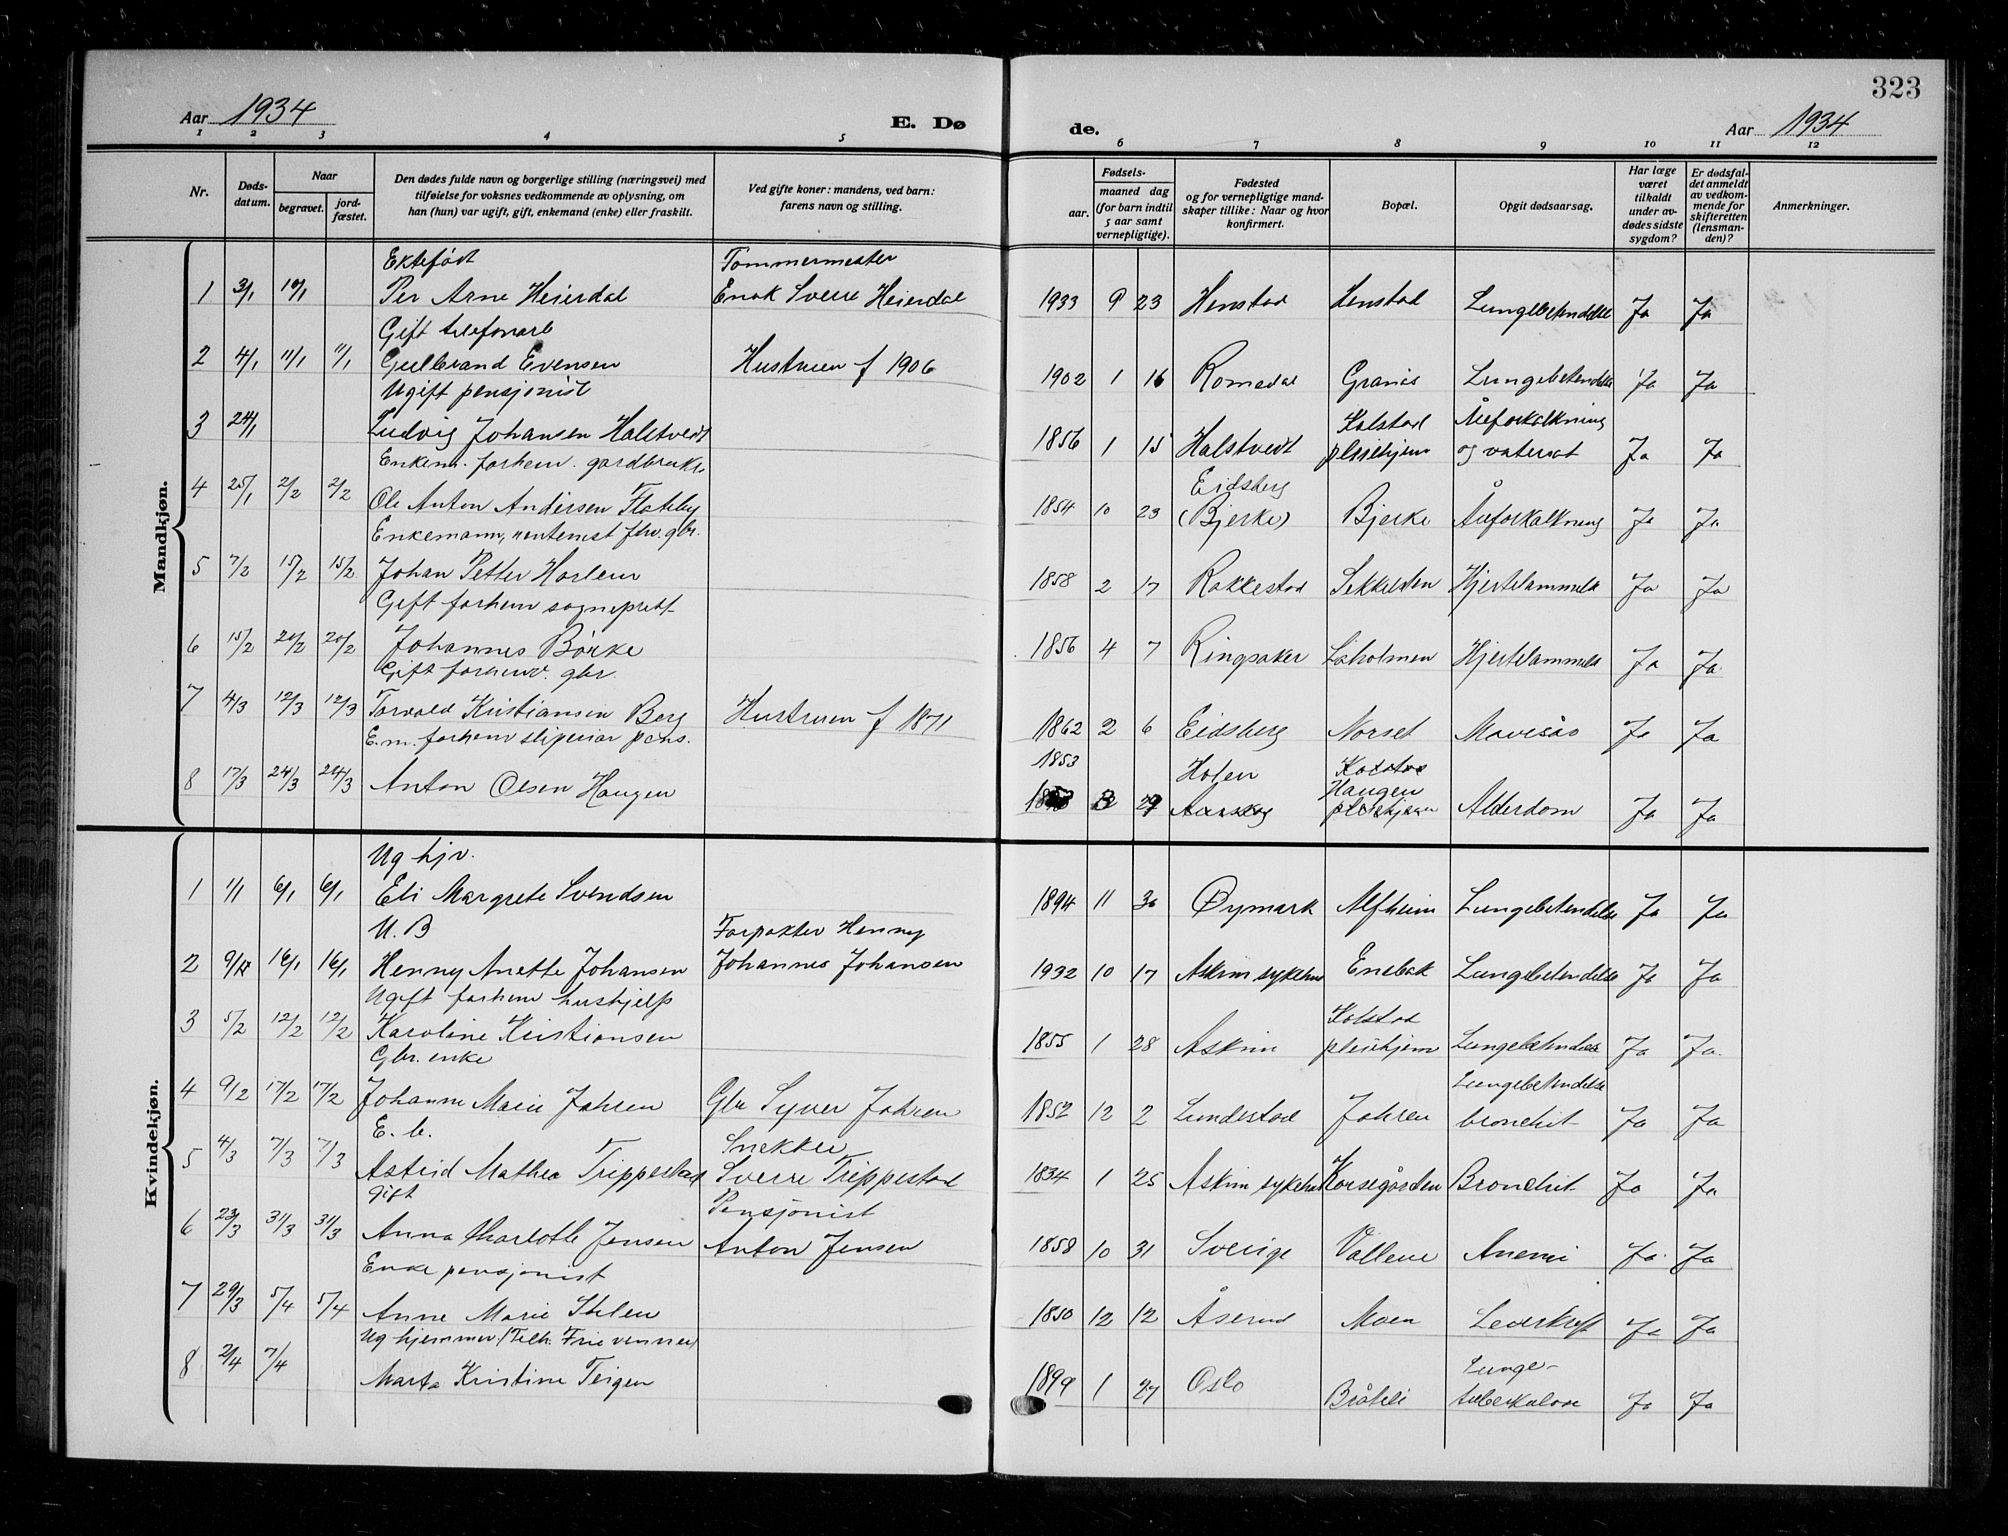 323
Aar 1934
E. Dø
de.
Aar 1934
1 2 3 4 5 6 7 8 9 10 11 12
Nr.
Døds-
datum.
Naar
begravet.
jord-
fæstet.
Den dødes fulde navn og borgerlige stilling (næringsvei) med
tilføielse for voksnes vedkommende av oplysning, om
han (hun) var ugift, gift, enkemand (enke) eller fraskilt.
Ved gifte koner: mandens, ved barn:
farens navn og stilling.
Fødsels-
aar.
maaned dag
(for barn indtil
5 aar samt
vernepligtige).
Fødested
og for vernepligtige mand-
skaper tillike: Naar og hvor
konfirmert.
Bopæl.
Opgit dødsaarsag.
Har læge
været
tilkaldt
under av-
dødes sidste
sygdom?
Er dødsfal-
det anmeldt
av vedkom-
mende for
skifteretten
(lensman-
den)?
Anmerkninger.
Mandkjøn.
Ektefødt Tømmermester
1 3/1 10/1 Per Arne Heierdal Enok Sverre Heierdal 1933 9 23 Henstad Henstad Lungebetendelse Ja Ja
Gift telefonarb
2 4/1 11/1 11/1 Gulbrand Evensen Hustruen f 1906 1902 1 16 Romedal Granis Lungebetendelse Ja Ja
Ugift pensjonist Kolstad Åreforkalkning
3 24/1 Ludvig Johansen Halstvedt 1856 1 15 Halstvedt pleiehjem og vatersot Ja Ja
Enkem. forhenv. gardbruker Eidsberg
4 25/1 2/2 2/2 Ole Anton Andersen Flateby 1854 10 23 (Bjerke) Bjerke Åreforkalkning Ja Ja
Enkemann, rentenist fhv. gbr.
5 7/2 15/2 15/2 Johan Petter Harlem 1858 2 17 Rakkestad Sekkelsten Hjertelammelse Ja Ja
Gift forhenv sogneprest
6 15/2 20/2 20/2 Johannes Børke 1856 4 7 Ringsaker Løkholmen Hjertelammelse Ja Ja
Gift forhenv. gbr.
7 4/3 12/3 12/3 Torvald Kristiansen Berg Hustruen f 1871 1862 2 6 Eidsberg Norset Mavesår Ja Ja
E.m. forhenv sliperiar pens. 1853 Holen Kolstad
8 17/3 24/3 24/3 Anton Olsen Haugen 8 29 Haugen pleiehjem Alderdom Ja Ja
Kvindekjøn.
Ug hjv.
1 1/1 6/1 6/1 Eli Margrete Svendsen 1894 11 30 Øymark Alfheim Lungebetendelse Ja Ja
U. B Forpakter Henny
2 9/1 16/1 16/1 Henny Anette Johansen Johannes Johansen 1932 10 17 Askim sykehus Enebak Lungebetendelse Ja Ja
Ugift forhenv hushjelp Kolstad
3 5/2 12/2 12/2 Karoline Kristiansen 1855 1 28 Askim pleiehjem Lungebetendelse Ja Ja.
Gbr. enke Lungebetendelse
4 9/2 17/2 17/2 Johanne Marie Jahren Gbr Syver Jahren 1852 12 2 Lundestad Jahren bronchit Ja Ja
E. b. Snekker
5 4/3 7/3 7/3 Astrid Mathea Trippestad Sverre Trippestad 1834 1 25 Askim sykehus Korsegården Bronchit Ja Ja
Gift Pensjonist
6 23/3 31/3 31/3 Anna Charlotte Jensen Anton Jensen 1858 10 31 Sverige Vallene Anemi Ja Ja
Enke pensjonist
7 29/3 5/4 5/4 Anne Marie Stelen 1850 12 12 Åserud Moen Leverkreft Ja Ja
Ug hjemmev. (Tilh. Frie venner) Lunge-
8 2/4 7/4 Marta Kristine Teigen 1899 1 27 Oslo Bråteli tuberkulose Ja Ja